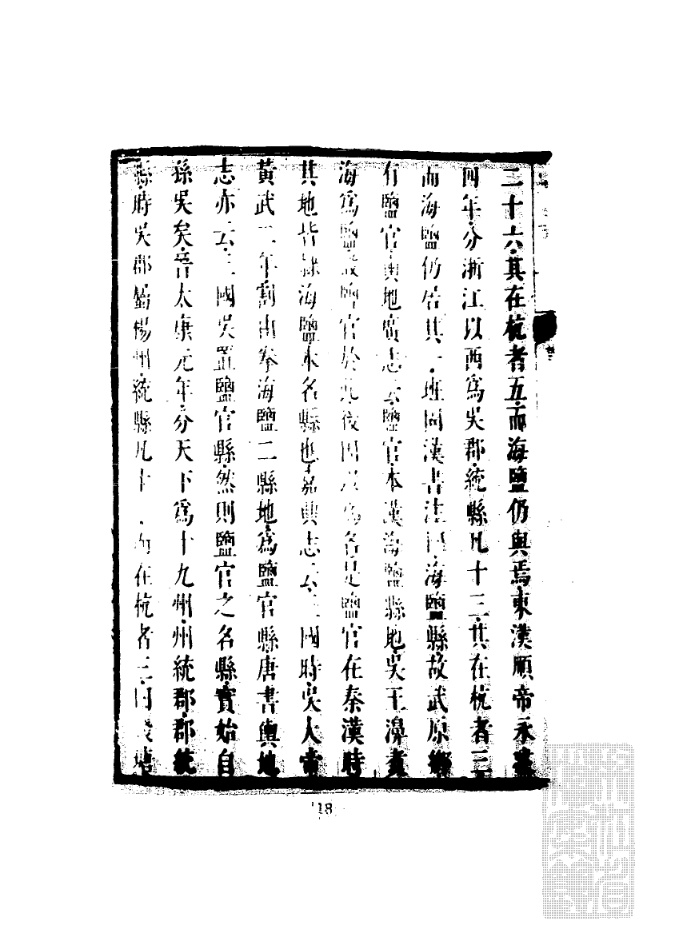 二十六其在杭者五而海鹽仍與焉東漢順帝永建
四年分浙江以西爲吳郡統縣凡十三其在杭者三
而海鹽仍居其一班固漢書注曰海鹽縣故武原鄉
有鹽官輿地廣志云鹽官本漢海鹽縣地吳王濞煮
海爲鹽鹽官於此後因以爲名是鹽官在秦漢時
其地皆隸海鹽本名縣也嘉興志云三國時吳大帝
黃武二年割由拳海鹽二縣地爲鹽官縣唐書輿地
志亦云三國吳置鹽官縣然則鹽官之名縣實始自
孫吳矣晉太康元年分天下爲十九州州統郡郡統
縣時吳郡屬楊州統縣凡十一而在杭者三曰錢塘
18